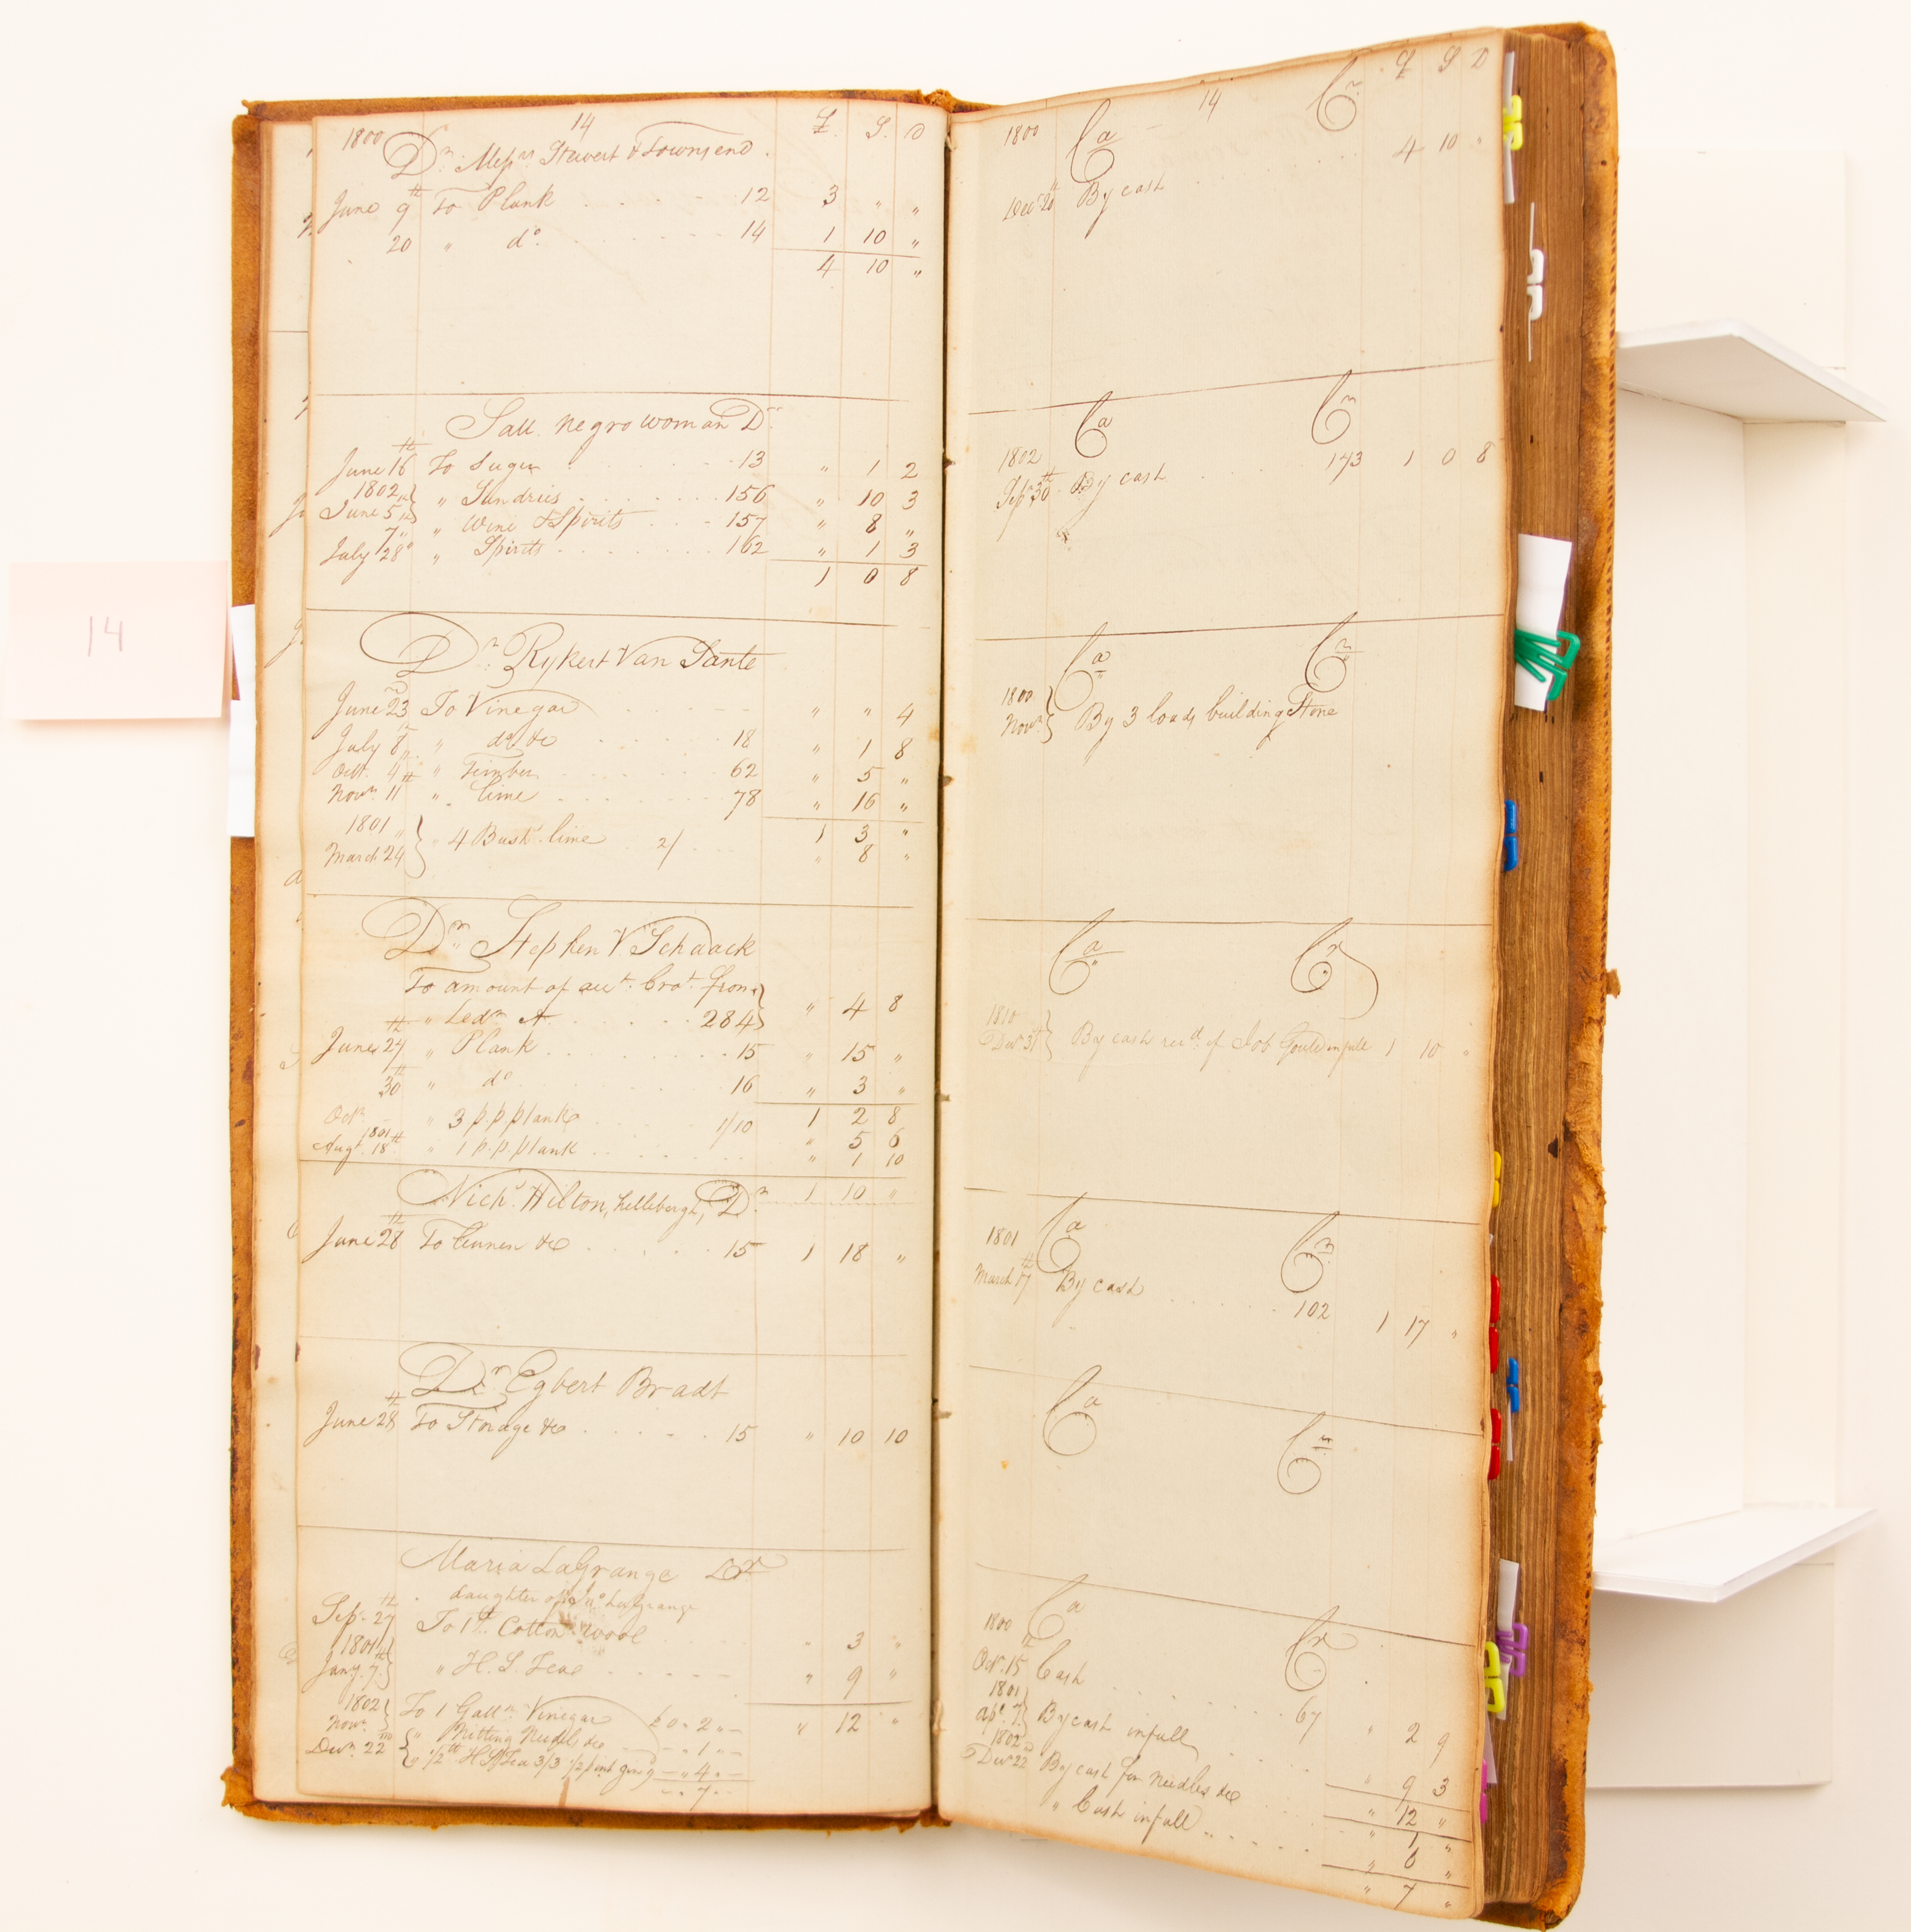 14
1800 14 £. S. D
Dr. Messrs Stewert & Townsend.
June 9th To Plank 12 3 " "
20 " do. 14 1 10 "
4 10 "
Sall. negro woman Dr.
June 16th To Sugar 13 " 1 2
1802
June 5th } " Sundries 156 " 10 3
7th " Wine & Spirits 157 " 8 "
July 28th " Spirits 162 " 1 3
1 0 8
Dr. Rykert Van Sante
June 23rd To Vinegar " " 4
July 8th " do. &c 18 " 1 8
Octr. 4th " Timber 62 " 5 "
Novr. 11th " lime 78 " 16 "
1 3 "
1801
March 24 } " 4 Bush. lime 2/ " 8 "
Dr. Stephen V. Schaack
To amount of acct. brot. from
" Ledr. A 284 } " 4 8
June 27th " Plank 15 " 15 "
30th " do 16 " 3 "
1 2 8
Octr. " 3 p.p. plank 1/10 " 5 6
1801
Augt. 18th " 1 p.p. plank " 1 10
1 10 "
Nichs. Hilton, hellebergh, Dr.
June 28th To Linnen &c 15 1 18 "
Dr. Egbert Bradt
June 28th To Storage &c 15 " 10 10
Maria LaGrange Dr
daughter of Jno. LaGrange
Sep. 27th To 1 lb. Cotton wool " 3 "
1801
Jany. 7th } " H. S. Tea " 9 "
" 12 "
1802
Novr. } To 1 Galln. Vinegar £0 " 2 " -
Decr. 22nd { " Nitting Needles &c - " 1 " -
" 1/2 lb H S Tea 3/3 1/2 pint gin 9 - " 4 " -
- " 7 -
£ S D
14
1800 Ca Cr
Decr. 20th By cash 4 10 "
Ca Cr
1802
Sepr. 30th By cash 173 1 0 8
Ca Cr
1800
Novr. } By 3 loads building Stone
Ca Cr
1810
Decr 31 } By cash recd. of Job Gould in full 1 10 "
Ca Cr
1801
March 17th By cash 102 1 17 "
Ca Cr
Ca Cr
1800
Octr. 15th Cash 67 " 2 9
1801
Apr. 7 } By cash in full " 9 3
" 12 "
1802
Decr 22nd By cash for needles &c " 1 "
" Cash in full " 6 "
" 7 "